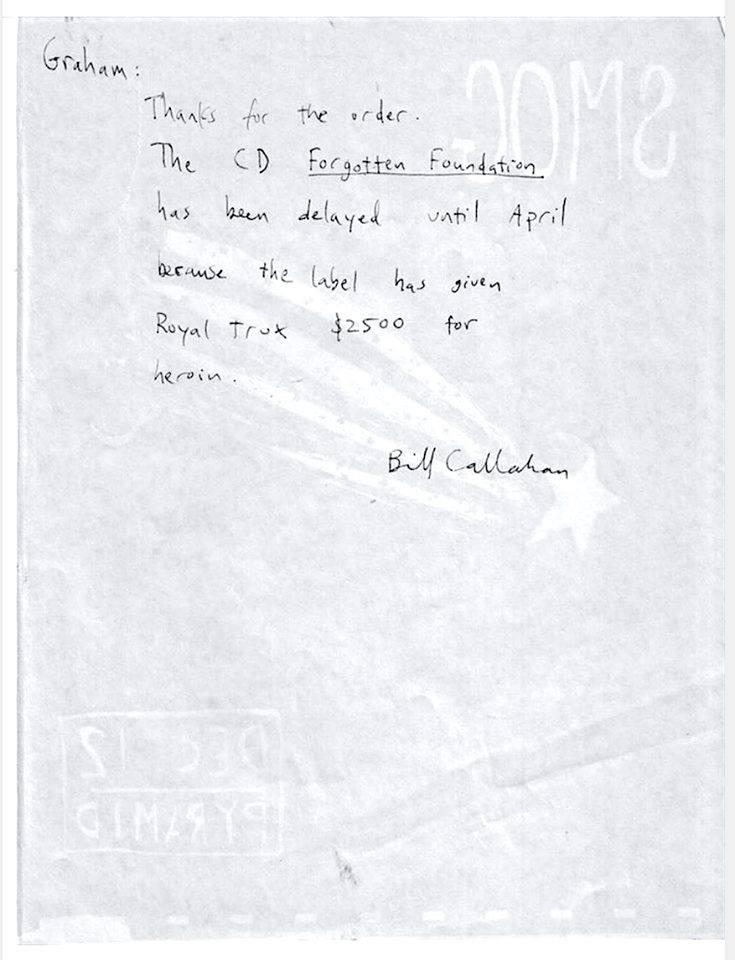 Graham:
Thanks for the order.
The CD Forgotten Foundation
has been delayed until April
because the label has given
Royal Trux $2500 for
heroin.
Bill Callahan
SMOG
DEC 12
PYRAMID